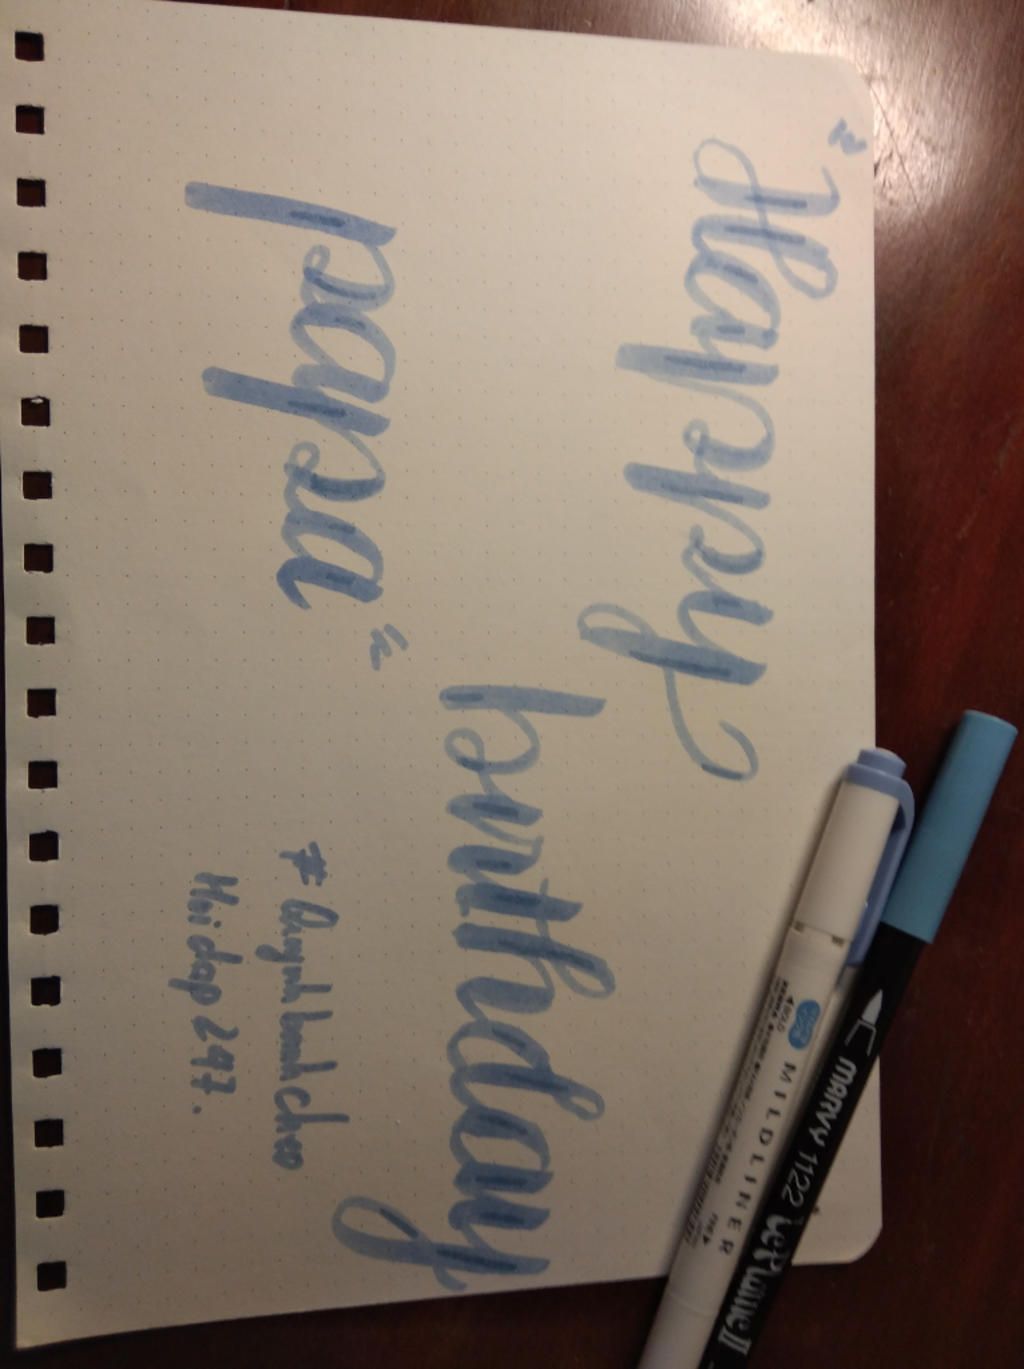 "Happy
birthday
papa"
# Quynh banh cheo
Hoidap 247.
MILDLINER
MARVY 1122 LePlume II